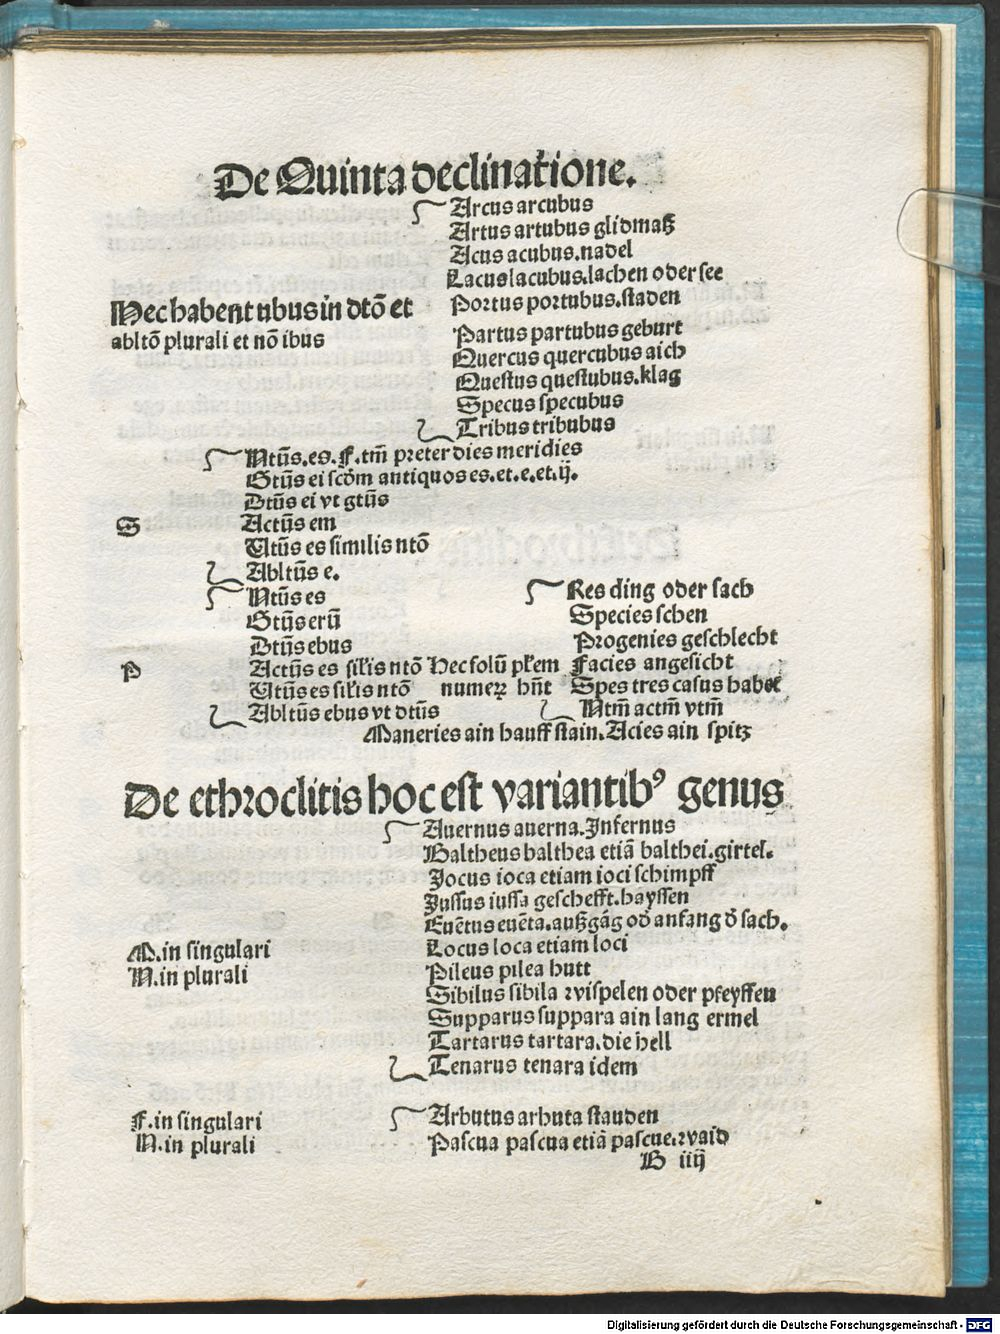 De Quinta declinatione.
Arcus arcubus
Artus artubus glidmaß
Acus acubus.nadel
Lacus lacubus.lachen oder see
Hec habent ubus in dtō et
abltō plurali et nō ibus
Portus portubus.staden
Partus partubus geburt
Quercus quercubus aich
Questus questubus.klag
Specus specubus
Tribus tribubus
S
Ntūs.es.F.tm̄ preter dies meridies
Gtūs ei scōm antiquos es.et.e.et.ij.
Dtūs ei vt gtūs
Actūs em
Utūs es similis ntō
Abltūs e.
P
Ntūs es
Gtūs erū
Dtūs ebus
Actūs es silis ntō
Utūs es silis ntō
Abltūs ebus vt dtūs
Hec solū plem
numeꝝ hn̄t
Res ding oder sach
Species schen
Progenies geschlecht
Facies angesicht
Spes tres casus habet
Ntm̄ actm̄ vtm̄
Maneries ain hauff stain.Acies ain spitz
De ethroclitis hoc est variantibꝰ genus
M.in singulari
N.in plurali
Auernus auerna.Infernus
Baltheus balthea etiā balthei.girtel.
Jocus ioca etiam ioci schimpff
Jussus iussa geschefft.hayssen
Euētus euēta.außgāg od̄ anfang d̄ sach.
Locus loca etiam loci
Pileus pilea hutt
Sibilus sibila wispelen oder pfeyffen
Supparus suppara ain lang ermel
Tartarus tartara.die hell
Tenarus tenara idem
F.in singulari
N.in plurali
Arbutus arbuta stauden
Pascua pascua etiā pascue.waid
B iiij
Digitalisierung gefördert durch die Deutsche Forschungsgemeinschaft - DFG